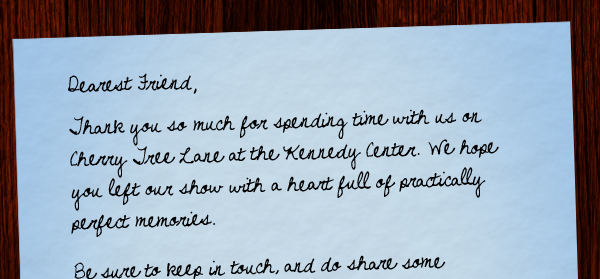 Dearest Friend,
Thank you so much for spending time with us on
Cherry Tree Lane at the Kennedy Center. We hope
you left our show with a heart full of practically
perfect memories.
Be sure to keep in touch, and do share some